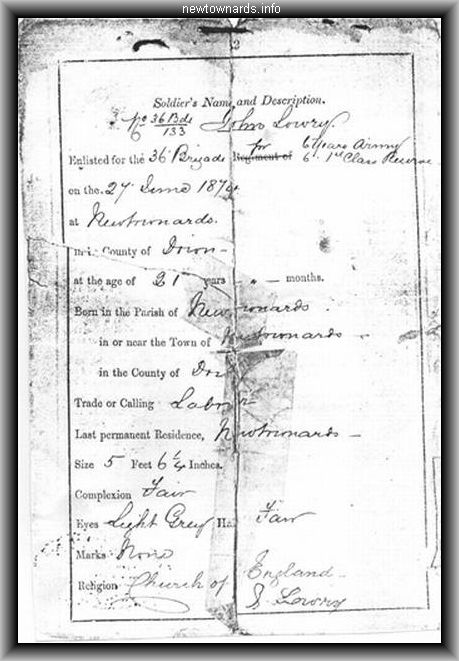 newtownards.info
2
Soldier's Name and Description.
No 36 Bde/133 John Lowry.
for 6 Years Army
Enlisted for the 36 Brigade Regiment of 6 1st Class Reserve
on the 27 June 1874
at Newtownards.
in County of Down
at the age of 21 years " — months.
Born in the Parish of Newtownards
in or near the Town of Newtownards
in the County of Down
Trade or Calling Labourer
Last permanent Residence, Newtownards —
Size 5 Feet 6 1/4 Inches.
Complexion Fair
Eyes Light Grey Ha Fair
Marks None
Religion Church of England
J Lowry